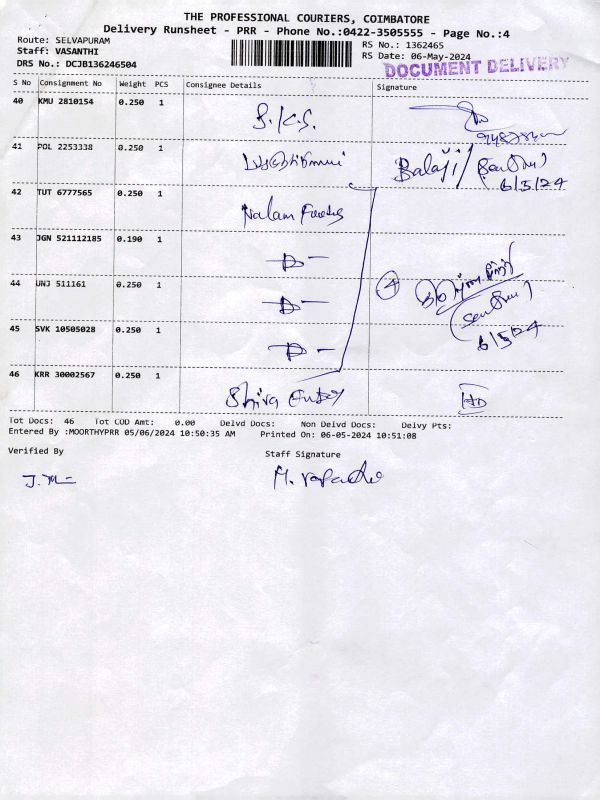 THE PROFESSIONAL COURIERS, COIMBATORE
Delivery Runsheet - PRR - Phone No.:0422-3505555 - Page No.:4
Route: SELVAPURAM
Staff: VASANTHI
DRS No.: DCJB136246504
RS No.: 1362465
RS Date: 06-May-2024
DOCUMENT DELIVERY
S No Consignment No Weight PCS Consignee Details Signature
40 KMU 2810154 0.250 1 S.K.S.
41 POL 2253338 0.250 1 Balaji/
6/5/24
42 TUT 6777565 0.250 1 Nalam Foods
43 JGN 521112185 0.190 1 D-
44 UNJ 511161 0.250 1 D- 4
45 SVK 10505028 0.250 1 D- 6/5/24
46 KRR 30002567 0.250 1 Shiva
Tot Docs: 46 Tot COD Amt: 0.00 Delvd Docs: Non Delvd Docs: Delvy Pts:
Entered By :MOORTHYPRR 05/06/2024 10:50:35 AM Printed On: 06-05-2024 10:51:08
Verified By Staff Signature